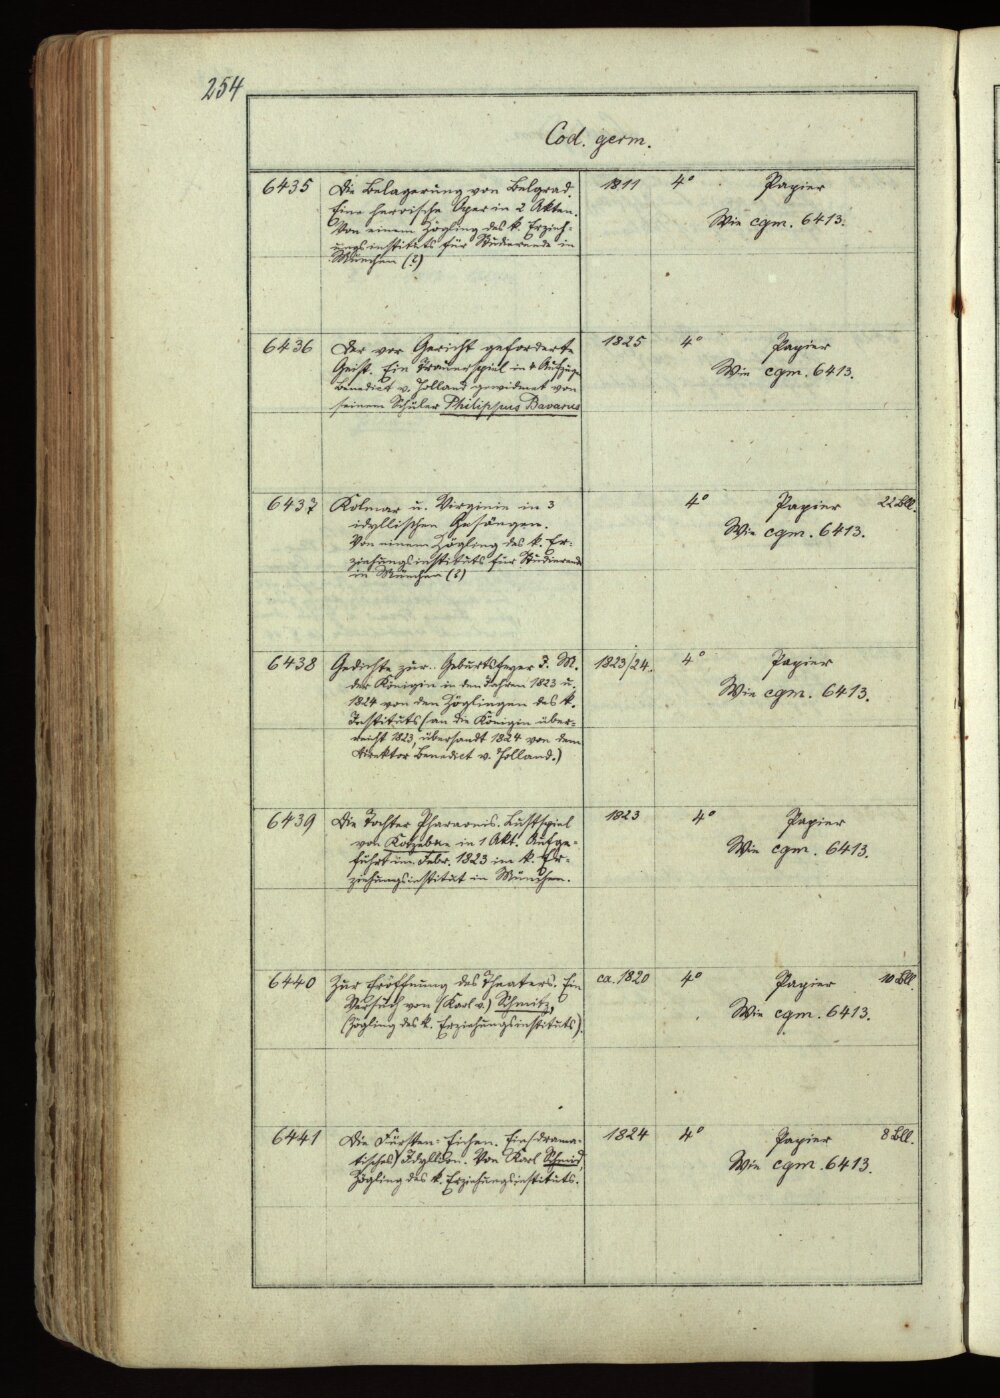 254
Cod. germ.
6435 Die Belagerung von Belgrad. 1811 4° Papier
Eine heroische Oper in 2 Akten. Wie cgm. 6413.
Von einem Zögling des k. Erzieh-
ungsinstituts für Studierende in
München (?)
6436 Der vor Gericht geforderte 1825 4° Papier
Geist. Ein Trauerspiel in 4 Aufzügen Wie cgm. 6413.
Benedict v. Holland gewidmet von
seinem Schüler Philippus Bavarus
6437 Kolmar u. Virginie in 3 4° Papier 22 Bll.
idyllischen Gesängen. Wie cgm. 6413.
Von einem Zögling des k. Er-
ziehungsinstituts für Studierende
in München (?)
6438 Gedichte zur Geburtsfeyer I. M. 1823/24. 4° Papier
der Königin in den Jahren 1823 u. Wie cgm. 6413.
1824 von den Zöglingen des k.
Instituts (an die Königin über-
reicht 1823, übersandt 1824 von dem
Direktor Benedict v. Holland.)
6439 Die Tochter Pharaonis. Lustspiel 1823 4° Papier
von Kotzebue in 1 Akt. Aufge- Wie cgm. 6413.
führt im Febr. 1823 im k. Er-
ziehungsinstitut in München.
6440 Zur Eröffnung des Theaters. Ein ca. 1820 4° Papier 10 Bll.
Versuch von (Karl v.) Schmitz, Wie cgm. 6413.
(Zögling des k. Erziehungsinstituts).
6441 Die Fürsten-Eichen. Ein (drama- 1824 4° Papier 8 Bll.
tisches) Von Karl Schmid, Wie cgm. 6413.
Zögling des k. Erziehungsinstituts.